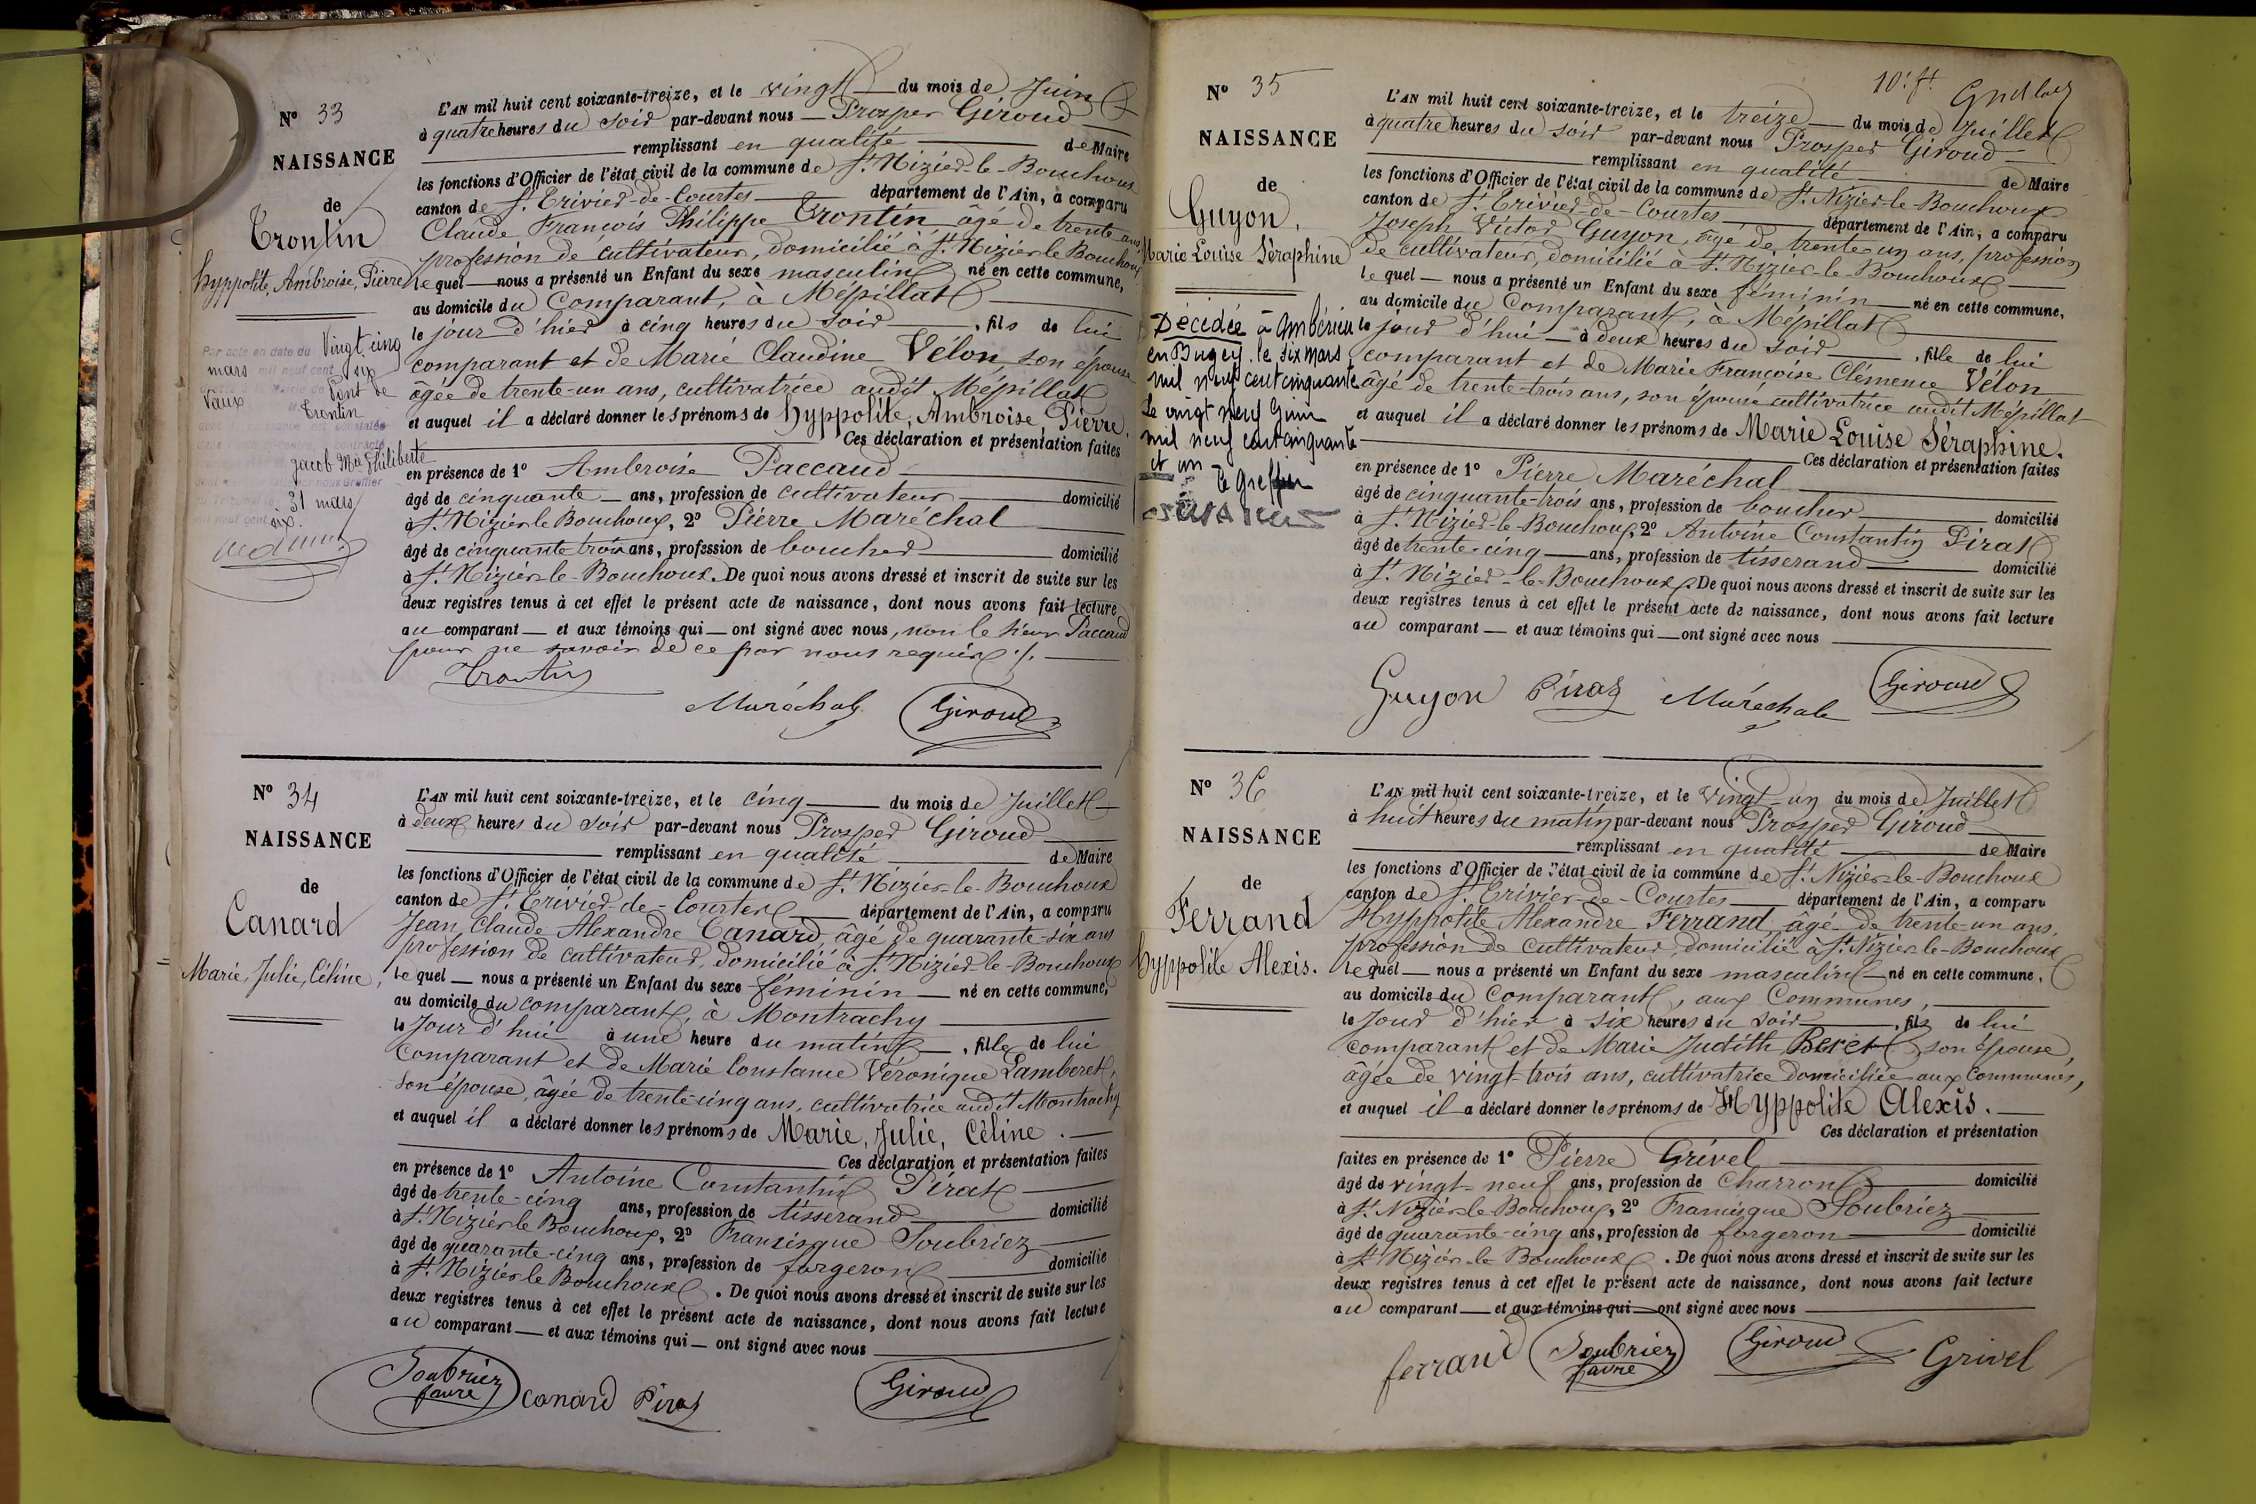 N° 33
NAISSANCE
de
Trontin
hyppolite, Ambroise, Pierre
Par acte en date du Vingt cinq
mars mil neuf cent six
Vaux Pont de
Trontin
Jacob Mie Philiberte
31 mars
six.
L'AN mil huit cent soixante-treize, et le vingt du mois de Juin
à quatre heures du soir par-devant nous Prosper Giroud
remplissant en qualité de Maire
les fonctions d'Officier de l'état civil de la commune de St. Nizier-le-Bouchoux
canton de St. Trivier-de-Courtes département de l'Ain, a comparu
Claude François Philippe Trontin âgé de trente ans
profession de cultivateur, domicilié à St. Nizier le Bouchoux
le quel nous a présenté un Enfant du sexe masculin né en cette commune,
au domicile du Comparant, à Mépillat
le jour d'hier à cinq heures du soir, fils de lui
comparant et de Marie Claudine Vélon, son épouse
âgée de trente-un ans, cultivatrice audit Mépillat
et auquel il a déclaré donner les prénoms de hyppolite, Ambroise, Pierre.
Ces déclaration et présentation faites
en présence de 1° Ambroise Paccaud
âgé de cinquante ans, profession de cultivateur domicilié
à St. Nizier le Bouchoux, 2° Pierre Maréchal
âgé de cinquante trois ans, profession de boucher domicilié
à St. Nizier-le-Bouchoux. De quoi nous avons dressé et inscrit de suite sur les
deux registres tenus à cet effet le présent acte de naissance, dont nous avons fait lecture
au comparant et aux témoins qui ont signé avec nous, non le sieur Paccaud
pour ne savoir de ce par nous requis ./.
Trontin
Maréchal Giroud
N° 34
NAISSANCE
de
Canard
Marie, Julie, Céline,
L'AN mil huit cent soixante-treize, et le cinq du mois de Juillet
à deux heures du soir par-devant nous Prosper Giroud
remplissant en qualité de Maire
les fonctions d'Officier de l'état civil de la commune de St. Nizier-le-Bouchoux
canton de St. Trivier-de-Courtes département de l'Ain, a comparu
Jean Claude Alexandre Canard, âgé de quarante-six ans
profession de cultivateur, domicilié à St. Nizier-le-Bouchoux
le quel nous a présenté un Enfant du sexe féminin né en cette commune,
au domicile du comparant, à Montrachy
le Jour d'hui à une heure du matin, fille de lui
Comparant et de Marie Constance Véronique Lamberet,
son épouse, âgée de trente-cinq ans, cultivatrice audit Montrachy
et auquel il a déclaré donner les prénoms de Marie, Julie, Céline.
Ces déclaration et présentation faites
en présence de 1° Antoine Constantin Pirat
âgé de trente-cinq ans, profession de tisserand domicilié
à St. Nizier le Bouchoux, 2° Francisque Soubriez
âgé de quarante-cinq ans, profession de forgeron domicilié
à St. Nizier le Bouchoux. De quoi nous avons dressé et inscrit de suite sur les
deux registres tenus à cet effet le présent acte de naissance, dont nous avons fait lecture
au comparant et aux témoins qui ont signé avec nous
Soubriez
favre Canard Pirat Giroud
10. ft.
N° 35
NAISSANCE
de
Guyon,
Marie Louise Séraphine
Décédée à Ambérieu
en Bugey le six mars
mil neuf cent cinquante
Le vingt neuf Juin
mil neuf cent cinquante
et un
Le Greffier
L'AN mil huit cent soixante-treize, et le treize du mois de Juillet
à quatre heures du soir par-devant nous Prosper Giroud
remplissant en qualité de Maire
les fonctions d'Officier de l'état civil de la commune de St. Nizier-le-Bouchoux
canton de St. Trivier-de-Courtes département de l'Ain, a comparu
Joseph Victor Guyon, âgé de trente-un ans, profession
de cultivateur, domicilié à St. Nizier-le Bouchoux
le quel nous a présenté un Enfant du sexe féminin né en cette commune,
au domicile du Comparant, à Mépillat
le jour d'hui à deux heures du soir, fille de lui
comparant et de Marie Françoise Clémence Vélon
âgé de trente-trois ans, son épouse cultivatrice audit Mépillat
et auquel il a déclaré donner les prénoms de Marie Louise Séraphine.
Ces déclaration et présentation faites
en présence de 1° Pierre Maréchal
âgé de cinquante-trois ans, profession de boucher domicilié
à St. Nizier-le-Bouchoux, 2° Antoine Constantin Pirat
âgé de trente-cinq ans, profession de tisserand domicilié
à St. Nizier-le-Bouchoux. De quoi nous avons dressé et inscrit de suite sur les
deux registres tenus à cet effet le présent acte de naissance, dont nous avons fait lecture
au comparant et aux témoins qui ont signé avec nous
Guyon Pirat Maréchal Giroud
N° 36
NAISSANCE
de
Ferrand
hyppolite Alexis.
L'AN mil huit cent soixante-treize, et le Vingt-un du mois de Juillet
à huit heures du matin par-devant nous Prosper Giroud
remplissant en qualité de Maire
les fonctions d'Officier de l'état civil de la commune de St. Nizier-le-Bouchoux
canton de St. Trivier-de-Courtes département de l'Ain, a comparu
Hyppolite Alexandre Ferrand, âgé de trente-un ans,
profession de cultivateur, domicilié à St. Nizier-le-Bouchoux
le quel nous a présenté un Enfant du sexe masculin né en cette commune,
au domicile du Comparant, aux Communes,
le Jour d'hier à six heures du soir, fils de lui
comparant et de Marie Judith Beret, son épouse,
âgée de vingt-trois ans, cultivatrice domiciliée aux Communes,
et auquel il a déclaré donner les prénoms de Hyppolite Alexis.
Ces déclaration et présentation
faites en présence de 1° Pierre Grivel
âgé de vingt-neuf ans, profession de Charron domicilié
à St. Nizier-le-Bouchoux, 2° Francisque Soubriez
âgé de quarante-cinq ans, profession de forgeron domicilié
à St. Nizier-le Bouchoux. De quoi nous avons dressé et inscrit de suite sur les
deux registres tenus à cet effet le présent acte de naissance, dont nous avons fait lecture
au comparant et aux témoins qui ont signé avec nous
ferrand Soubriez
favre Giroud Grivel